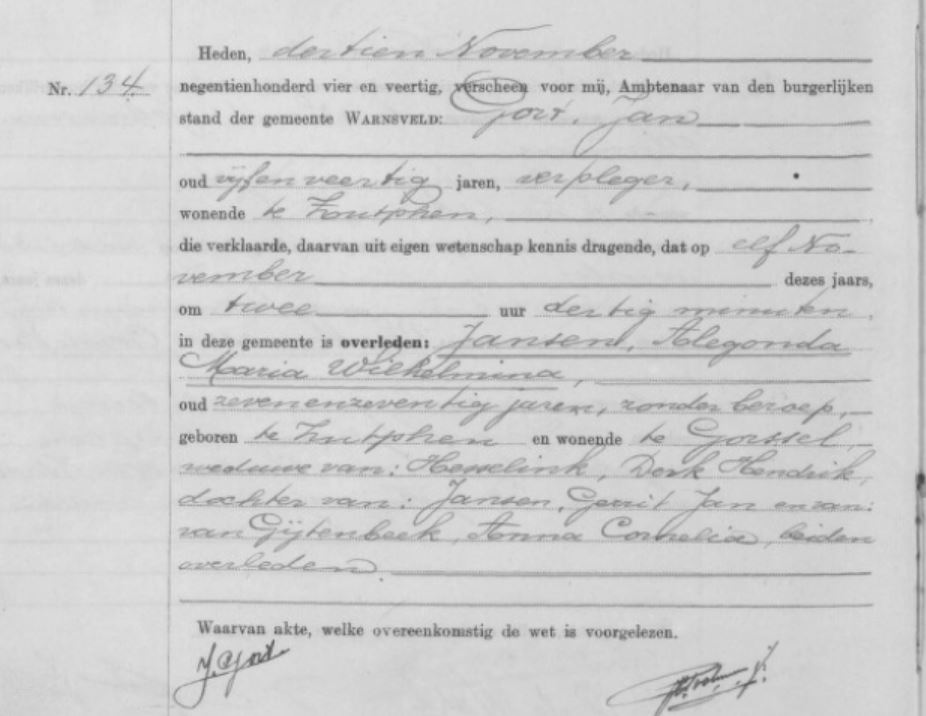 Heden, dertien November
Nr. 134 negentienhonderd vier en veertig, verscheen voor mij, Ambtenaar van den burgerlijken
stand der gemeente WARNSVELD: Gort, Jan
oud vijfenveertig jaren, verpleger,
wonende te Zutphen,
die verklaarde, daarvan uit eigen wetenschap kennis dragende, dat op elf No-
vember dezes jaars,
om twee uur dertig minuten,
in deze gemeente is overleden: Jansen, Alegonda
Maria Wilhelmina,
oud zevenenzeventig jaren, zonder beroep,
geboren te Zutphen en wonende te Gorssel,
weduwe van: Hesselink, Derk Hendrik,
dochter van: Jansen, Gerrit Jan en van:
van Gijtenbeek, Anna Cornelia, beiden
overleden.
Waarvan akte, welke overeenkomstig de wet is voorgelezen.
J. Gort